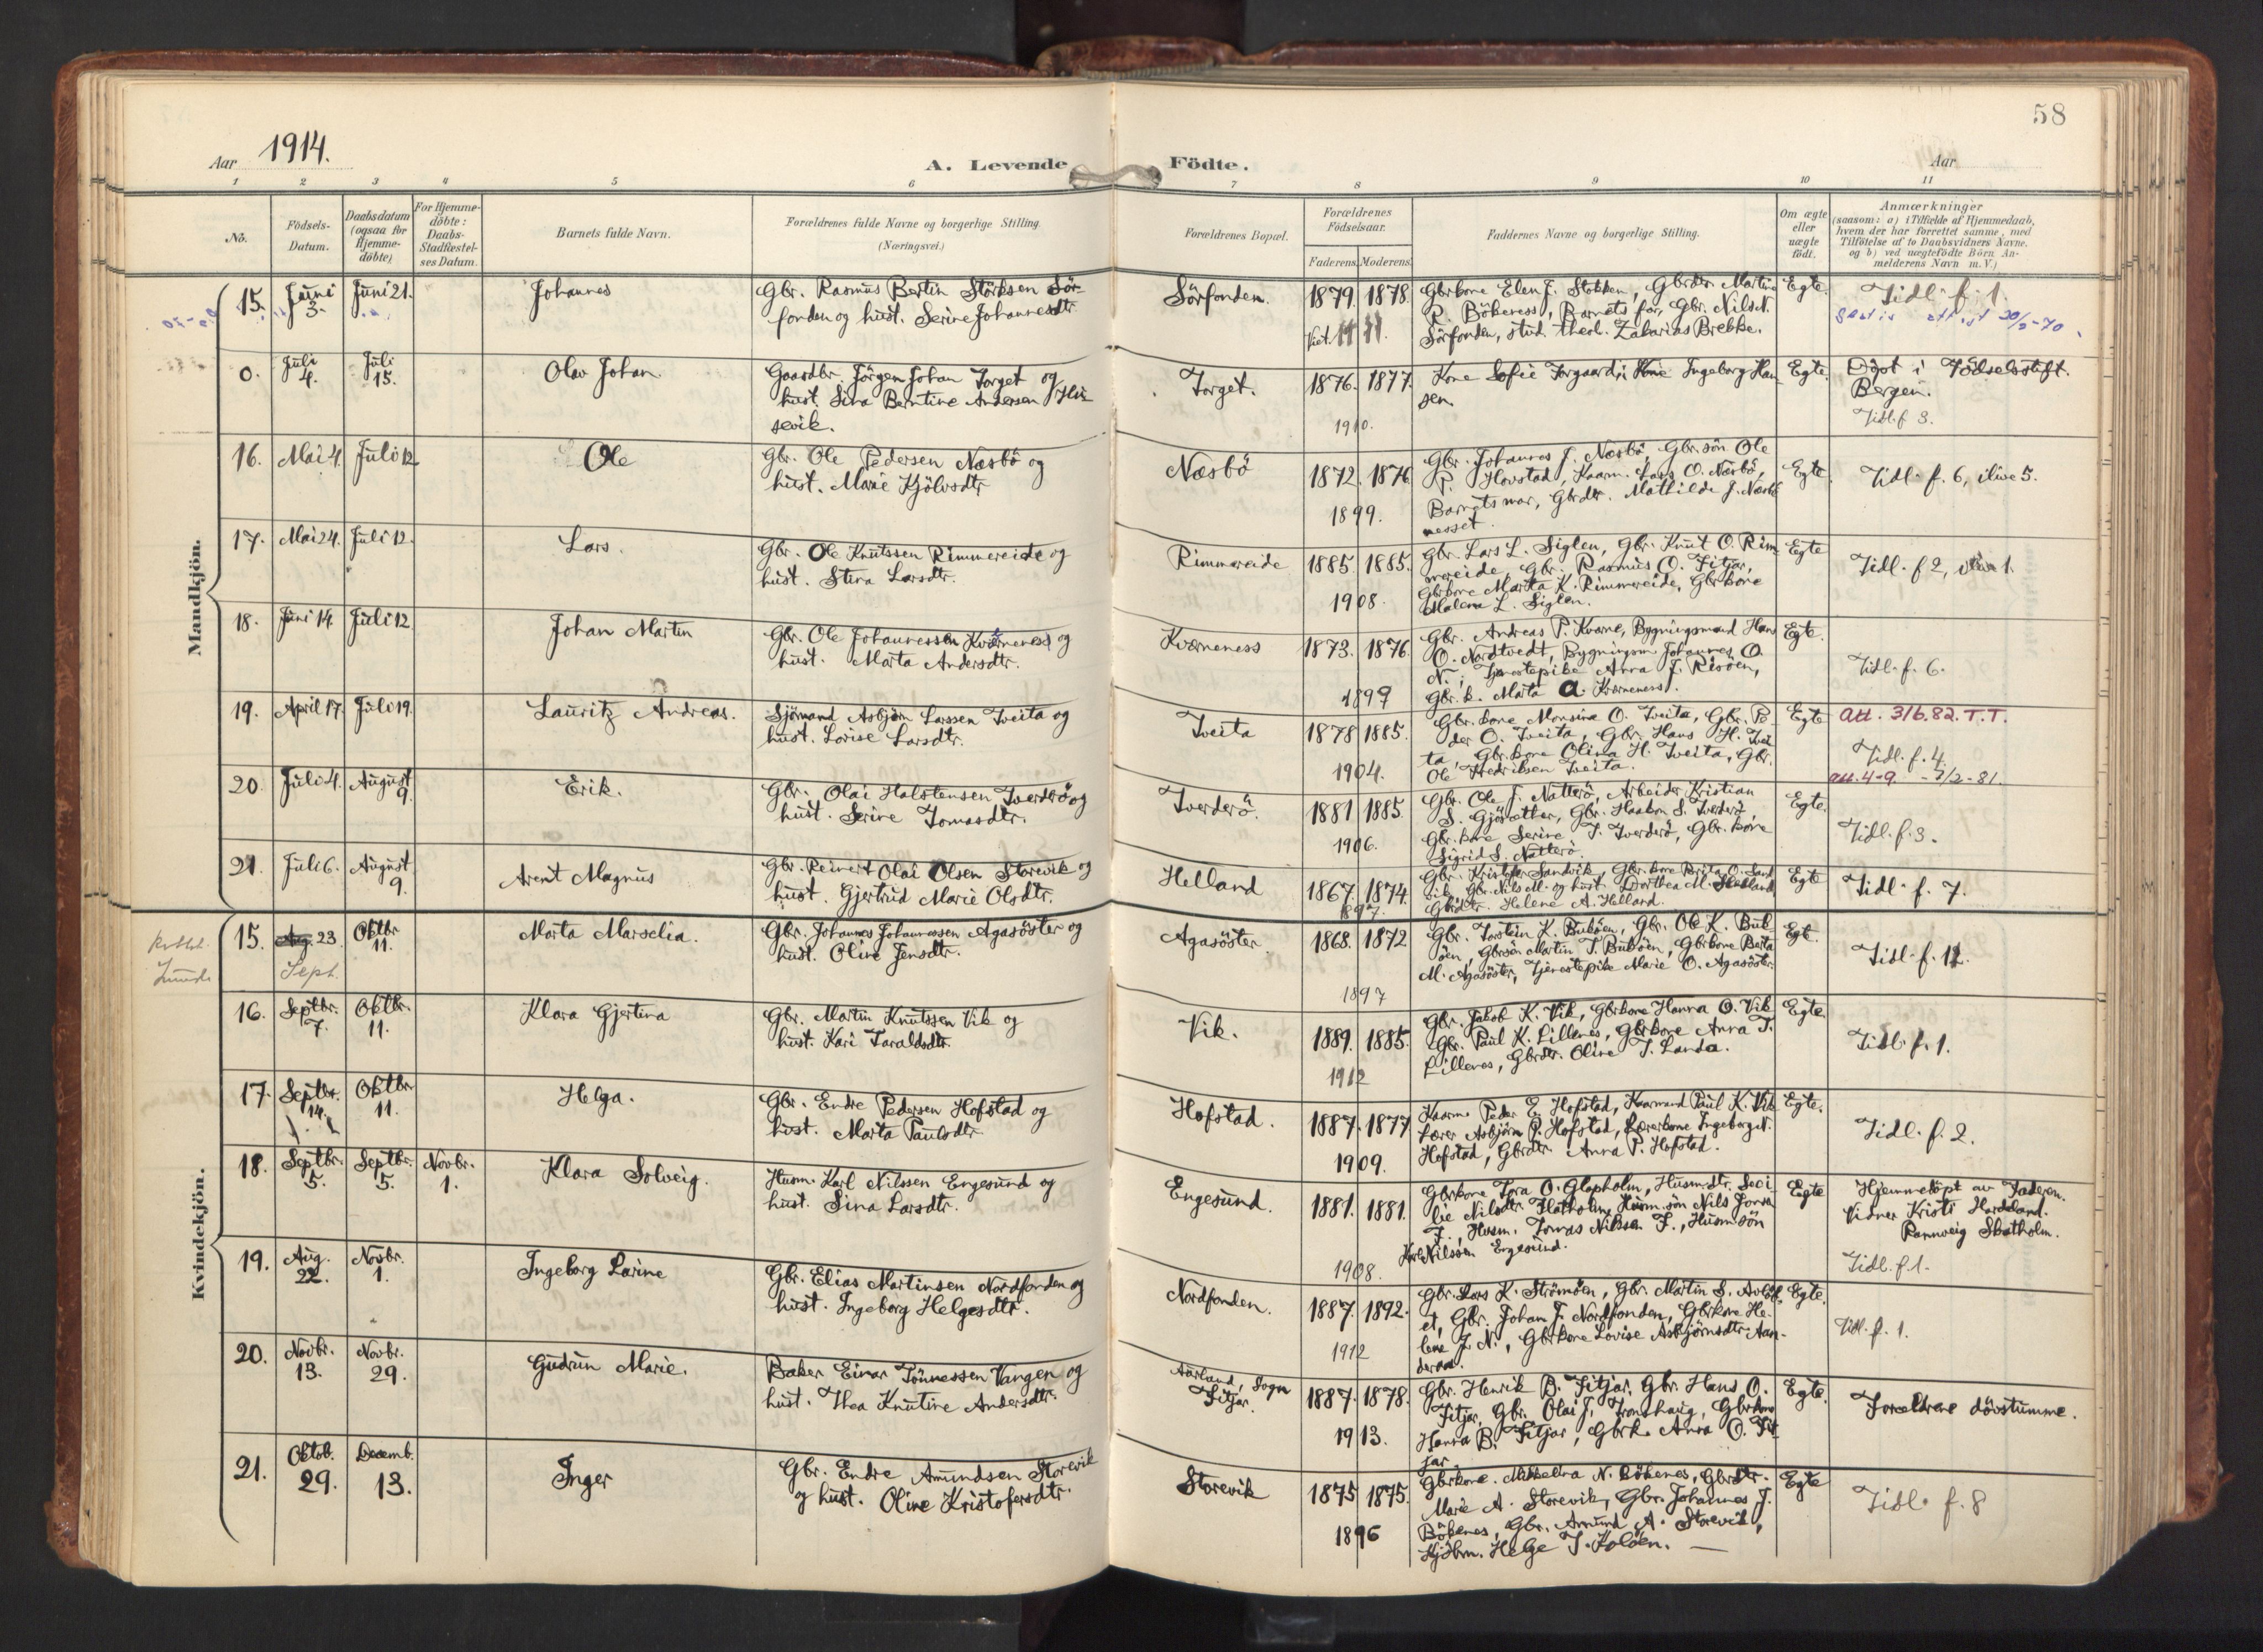 58
Aar 1914. A. Levende Födte. Aar
1 2 3 4 5 6 7 8 9 10 11
No. Födsels-Datum. Daabsdatum (ogsaa for Hjemme-döbte) For Hjemme-döbte: Daabs-Stadfæstel-ses Datum. Barnets fulde Navn. Forældrenes fulde Navne og borgerlige Stilling (Næringsvei.) Forældrenes Bopæl. Forældrenes Födselsaar. Faderens. Moderens. Faddernes Navne og borgerlige Stilling. Om ægte eller uægte födt. Anmærkninger (saasom: a) i Tilfælde af Hjemmedaab, hvem der har forrettet samme, med Tilföielse af to Daabsvidners Navne. og b) ved uægtefödte Börn An-melderens Navn m.V.)
Mandkjön.
15. Juni 3. Juni 21. Johannes
Gbr. Rasmus Bertin Störksen Sör-
fonden og hust. Serine Johannesdtr.
Sörfonden. 1879. 1878.
Viet. 11
Gbrkone Elen J. Stokken, Gbrdtr. Martine
P. Bökeness, Barnets far, Gbr. Nils N.
Sörfonden, stud. theol. Zakarias Brekke.
Egte. Tidl. f. 1.
20/2-70
0. Juli 4. Juli 15. Olav Johan.
Gaardbr. Jörgen Johan Torget og
hust. Sina Berntine Andersen
sevik.
Torget. 1876. 1877.
1910.
Kone Sofie Torgaard; Kone Ingeborg Han-
sen.
Egte. Döpt i Födselsstift.
Bergen.
Tidl. f 3.
16. Mai 4. Juli 12. Ole
Gbr. Ole Pedersen Næsbö og
hust. Marie Kjölvsdtr
Næsbö 1872. 1876
1899.
Gbr. Johannes J. Næsbö, Gbr.sön Ole
P. Hovstad, Kaarm. Lars O. Næsbö,
Barnets mor, Gbrdtr. Mathilde J. Næsbö
nesset.
Egte. Tidl. f. 6, ilive 5.
17. Mai 24. Juli 12. Lars.
Gbr. Ole Knutssen Rimmereide og
hust. Stina Larsdtr.
Rimmereide 1885. 1885.
1908.
Gbr. Lars L. Siglen, Gbr. Knut O. Rim-
mereide, Gbr. Rasmus O. Fitjar,
Gbrkone Marta K. Rimmereide, Gbrkone
Malena L. Siglen.
Egte Tidl. f 2, ilive 1.
18. Juni 14. Juli 12 Johan Martin
Gbr. Ole Johannessen Kværneness og
hust. Marta Andersdtr.
Kværneness 1873. 1876.
1899
Gbr. Andreas P. Kværne, Bygningsmand Hans
O. Nordtvedt, Bygningsm. Johannes O.
N.; Tjenestepike Anna J. Risöen,
Gbr. k. Marta A. Kværneness.
Egte. Tidl. f. 6.
19. April 17. Juli 19. Lauritz Andreas.
Sjömand Asbjörn Larssen Tveita og
hust. Lovise Larsdtr.
Tveita 1878 1885.
1904.
Gbr. kone Monsina O. Tveita, Gbr. Pe-
der O. Tveita, Gbr. Hans H. Tvei-
ta, Gbr.kone Olina H. Tveita, Gbr.
Ole Hedriksen Tveita.
Egte att. 3/6.82. T.T.
Tidl. f. 4.
att. 4-9. - 7/2-81.
20. Juli 4. August 9. Erik.
Gbr. Olai Halstensen Tverderö og
hust. Serine Tomasdtr.
Tverderö. 1881 1885.
1906.
Gbr. Ole J. Natterö, Arbeider Kristian
S. Gjösæther, Gbr. Haakon S. Tverderö,
Gbr. kone Serine T. Tverderö, Gbr. kone
Sigrid S. Natterö.
Egte. Tidl. f. 3.
21. Juli 6. August 9. Arent Magnus
Gbr. Reinert Olai Olsen Storevik og
hust. Gjertrud Marie Olsdtr.
Helland 1867. 1874.
1897.
Gbr. Kristofer Sandvik, Gbr. kone Brita O. Sand-
vik, Gbr. Nils M. og hust. Dorthea M. Helland
Gbrdtr. Helene A. Helland.
Egte Tidl. f. 7.
Kvindekjön.
15. Aug. 23. Oktbr. 11. Marta Marselia.
Sept.
Gbr. Johannes Johannessen Agasöster og
hust. Oline Jensdtr.
Agasöster 1868. 1872
1897
Gbr. Torstein K. Buköen, Gbr. Ole K. Buk-
öen, Gbrsön Martin T. Buköen, Gbrkone Berta
M. Agasöster, Tjenestepike Marie O. Agasöster.
Egt. Tidl. f. 11.
16. Septbr. 7. Oktbr. 11. Klara Gjertina
Gbr. Martin Knutssen Vik og
hust. Kari Taraldsdtr.
Vik. 1889. 1885.
1912
Gbr. Jakob K. Vik, Gbrkone Hanna O. Vik
Gbr. Paul K. Lillenes, Gbrkone Anna T.
Lillenes, Gbrdtr. Oline T. Landa.
Egte. Tidl. f. 1.
17. Septbr. 14. Oktbr. 11. Helga.
Gbr. Endre Pedersen Hofstad og
hust. Marta Paulsdtr
Hofstad. 1887. 1877
1909.
Kaarm. Peder E. Hofstad, Kaarmand Paul K. Vik
Lærer Asbjörn P. Hofstad, Lærerkone Ingeborg N.
Hofstad, Gbrdtr. Anna P. Hofstad.
Egte. Tidl. f. 2.
18. Septbr. 5. Septbr. 5. Novbr. 1. Klara Solveig.
Husm. Karl Nilssen Engesund og
hust. Sina Larsdtr.
Engesund. 1881. 1881.
1908.
Gbrkone Tora O. Glopholm, Husm.dtr. Seci-
lie Nilsdtr. Flatholm, Husm.sön Nils Jonas
F., Husm. Tomas Nilssen F., Husm.sön
Karl Nilssen Engesund.
Egte Hjemmedöpt av Faderen.
Vidner Kristi Hardeland.
Rannveig Skatholm.
Tidl. f. 1.
19. Aug. 22. Novbr. 1. Ingeborg Larine
Gbr. Elias Martinsen Nordfonden og
hust. Ingeborg Helgesdtr.
Nordfonden. 1887. 1892.
1912
Gbr. Lars K. Strömöen, Gbr. Martin S.
et, Gbr. Johan J. Nordfonden, Gbrkone He-
lene J. N., Gbrkone Lovise Asbjörnsdtr Aan-
deraa.
Egte. Tidl. f. 1.
20. Novbr. 13. Novbr. 29. Gudrun Marie.
Baker Einar Tönnessen Vangen og
hust. Thea Knutine Andersdtr.
Aurland, Sogn
Fitjar. 1887. 1878.
1913.
Gbr. Henrik B. Fitjar, Gbr. Hans O.
Fitjar, Gbr. Olai J. Tronshaug, Gbrkone
Hanna B. Fitjar, Gbrk. Anna O. Fit-
jar.
Egte. Forældrene dövstumme.
21. Oktob. 29. Decemb. 13. Inger
Gbr. Endre Amundsen Storevik
og hust. Oline Kristofersdtr.
Storevik 1875 1875.
1896
Gbrkone. Mikkelina N. Bökenes, Gbrdtr.
Marie A. Storevik, Gbr. Johannes J.
Bökenes, Gbr. Amund A. Storevik,
Kjöbm. Helge T. Koløen.
Egte Tidl. f. 8